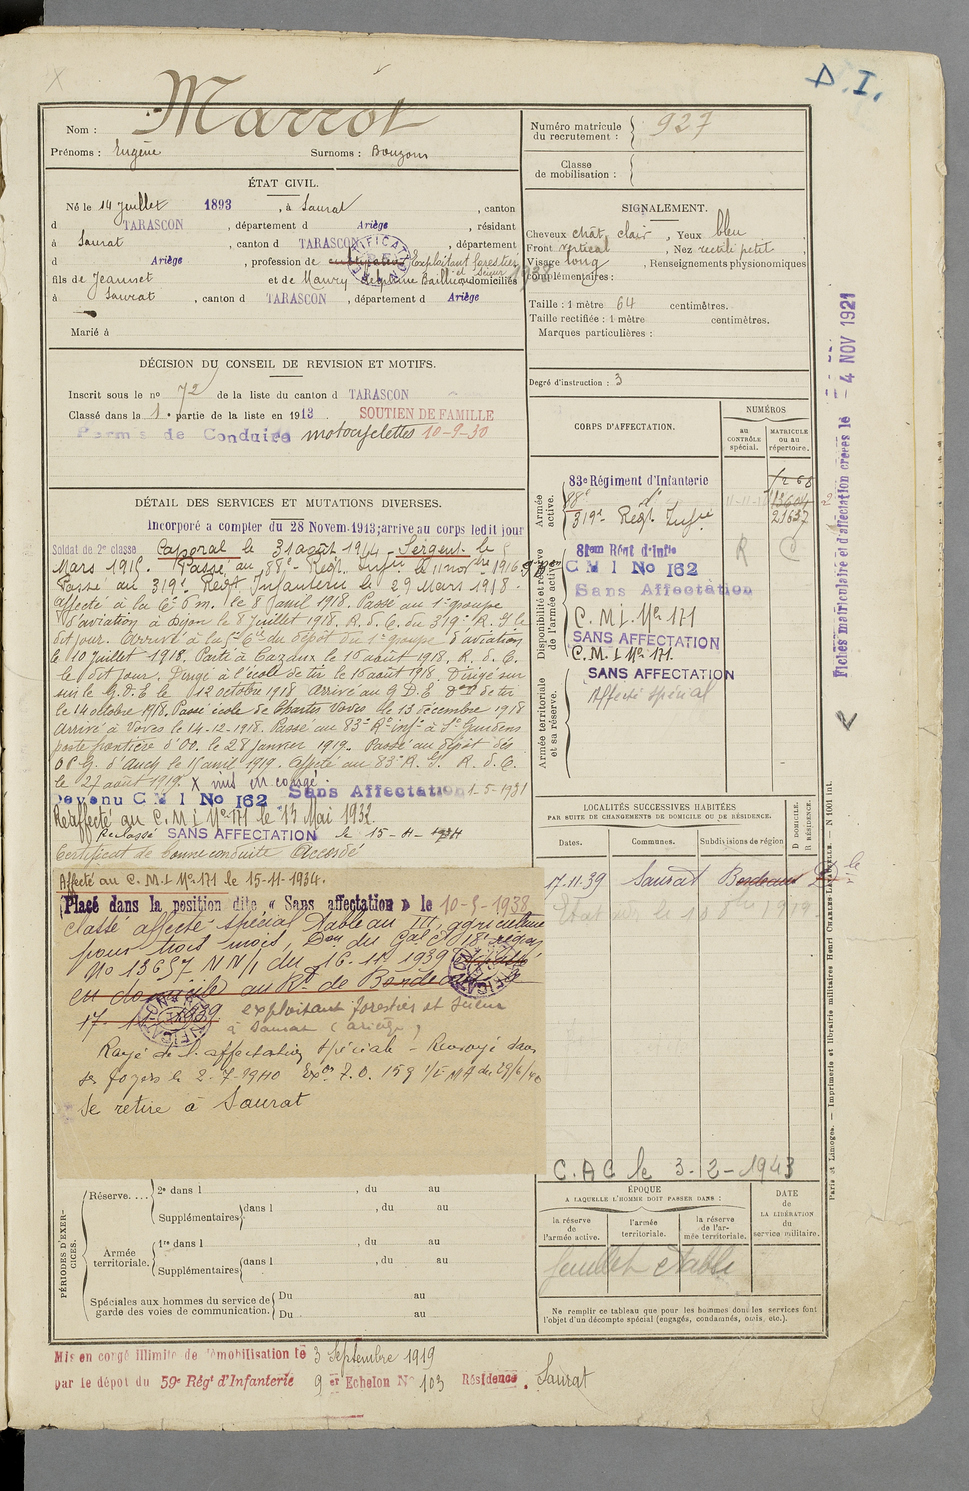 D.I.
Nom : Marrot
Prénoms : Eugène Surnoms : Bouzom
ÉTAT CIVIL.
Né le 14 juillet 1893, à Saurat, canton
d TARASCON, département d Ariège, résidant
à Saurat, canton d TARASCON, département
d Ariège, profession de cultivateur Exploitant forestier et scieur 1938
fils de Jeannet et de Maury domiciliés
à Saurat, canton d TARASCON, département d Ariège
Marié à
DÉCISION DU CONSEIL DE REVISION ET MOTIFS.
Inscrit sous le no 72 de la liste du canton d TARASCON
Classé dans la 1e partie de la liste en 1913 SOUTIEN DE FAMILLE
Permis de Conduire motocyclettes 10-9-30
DÉTAIL DES SERVICES ET MUTATIONS DIVERSES.
Incorporé a compter du 28 Novem. 1913; arrive au corps ledit jour
Soldat de 2e classe Caporal le 31 août 1914 - Sergent le 5
Mars 1915. Passé au 88e Regt Infie le 11 novbre 1916
Passé au 319e Regt Infanterie le 29 Mars 1918.
affecté à la 6e Cie le 8 avril 1918. Passé au 1er groupe
d'aviation à Dijon le 8 juillet 1918. R. d. C. du 319e R. I. le
dit jour. Arrivé à la Cie du dépot du 1er groupe d'aviation
le 10 juillet 1918. Parti à Cazaux le 10 août 1918. R. d. C.
le dit jour. Dirigé à l'école de tir le 10 août 1918. Dirigé sur
le G.D.E le 12 octobre 1918. Arrivé au G D E de tir
le 14 octobre 1918. Passé école de Chartres Voves le 13 décembre 1918
Arrivé à Voves le 14-12-1918. Passé au 83e R. inf. à St Gaudens
poste frontière d'Oo. le 28 janvier 1919. Passé au dépôt des
O P G. d'Auch le 15 avril 1919. Affecté au 83e R. I. R. d. C.
le 27 août 1919. X mis en congé.
Devenu C M I No 162 Sans Affectation 1-5-1931
Réaffecté au C. M. I No 171 le 13 Mai 1932.
Reclassé SANS AFFECTATION le 15-11-1934
Certificat de bonne conduite Accordé
Affecté au C. M. I No 171 le 15-11-1934.
Placé dans la position dite « Sans affectation » le 10-5-1938
Classé affecté spécial Tableau III agriculture
pour trois mois, Don du Gal Ct 18e région
No 13657 NN/1 du 16.11.1939
en domicile au Rt de Bordeaux
17-11-1939 exploitant forestier et scieur
à Saurat (Ariège)
Rayé de l'affectation spéciale - Renvoyé dans
ses foyers le 2-7-1940 Exon F.O. 159 1/E M A du 29/6/40
Se retire à Saurat
PÉRIODES D'EXERCICES.
Réserve.... 2e dans l , du au
Supplémentaires dans l , du au
Armée territoriale. 1re dans l , du au
Supplémentaires dans l , du au
Spéciales aux hommes du service de garde des voies de communication. Du au
Du au
Mis en congé illimité de démobilisation le 3 Septembre 1919
par le dépôt du 59e Régt d'Infanterie 9er Echelon No 103 Résidence. Saurat
Numéro matricule du recrutement : 927
Classe de mobilisation :
SIGNALEMENT.
Cheveux chât. clair, Yeux bleu
Front vertical, Nez rectil. petit
Visage long, Renseignements physionomiques
complémentaires :
Taille : 1 mètre 64 centimètres.
Taille rectifiée : 1 mètre centimètres.
Marques particulières :
Degré d'instruction : 3
CORPS D'AFFECTATION.
NUMÉROS
au CONTRÔLE spécial.
MATRICULE ou au répertoire.
Armée active.
83e Régiment d'Infanterie
88e do 11-11-16 13604
319e Regt Infie 21637
Disponibilité et réserve de l'armée active.
81em Régt d'Infie R C
C M I No 162
Sans Affectation
C. M. I. No 171
SANS AFFECTATION
C. M. I No 171.
Armée territoriale et sa réserve.
SANS AFFECTATION
Affecté spécial
LOCALITÉS SUCCESSIVES HABITÉES
PAR SUITE DE CHANGEMENTS DE DOMICILE OU DE RÉSIDENCE.
Dates. Communes. Subdivisions de région D DOMICILE. R RÉSIDENCE.
17-11-39 Saurat Bordeaux D
C.A.C le 3-12-1943
ÉPOQUE
A LAQUELLE L'HOMME DOIT PASSER DANS :
la réserve de l'armée active.
l'armée territoriale.
la réserve de l'armée territoriale.
DATE de LA LIBÉRATION du service militaire.
feuillet établi
Ne remplir ce tableau que pour les hommes dont les services font
l'objet d'un décompte spécial (engagés, condamnés, omis, etc.).
Fiches matriculaire et d'affectation créées le - 4 NOV 1921
Paris et Limoges. — Imprimerie et librairie militaires Henri CHARLES-LAVAUZELLE. — N 1001 int.